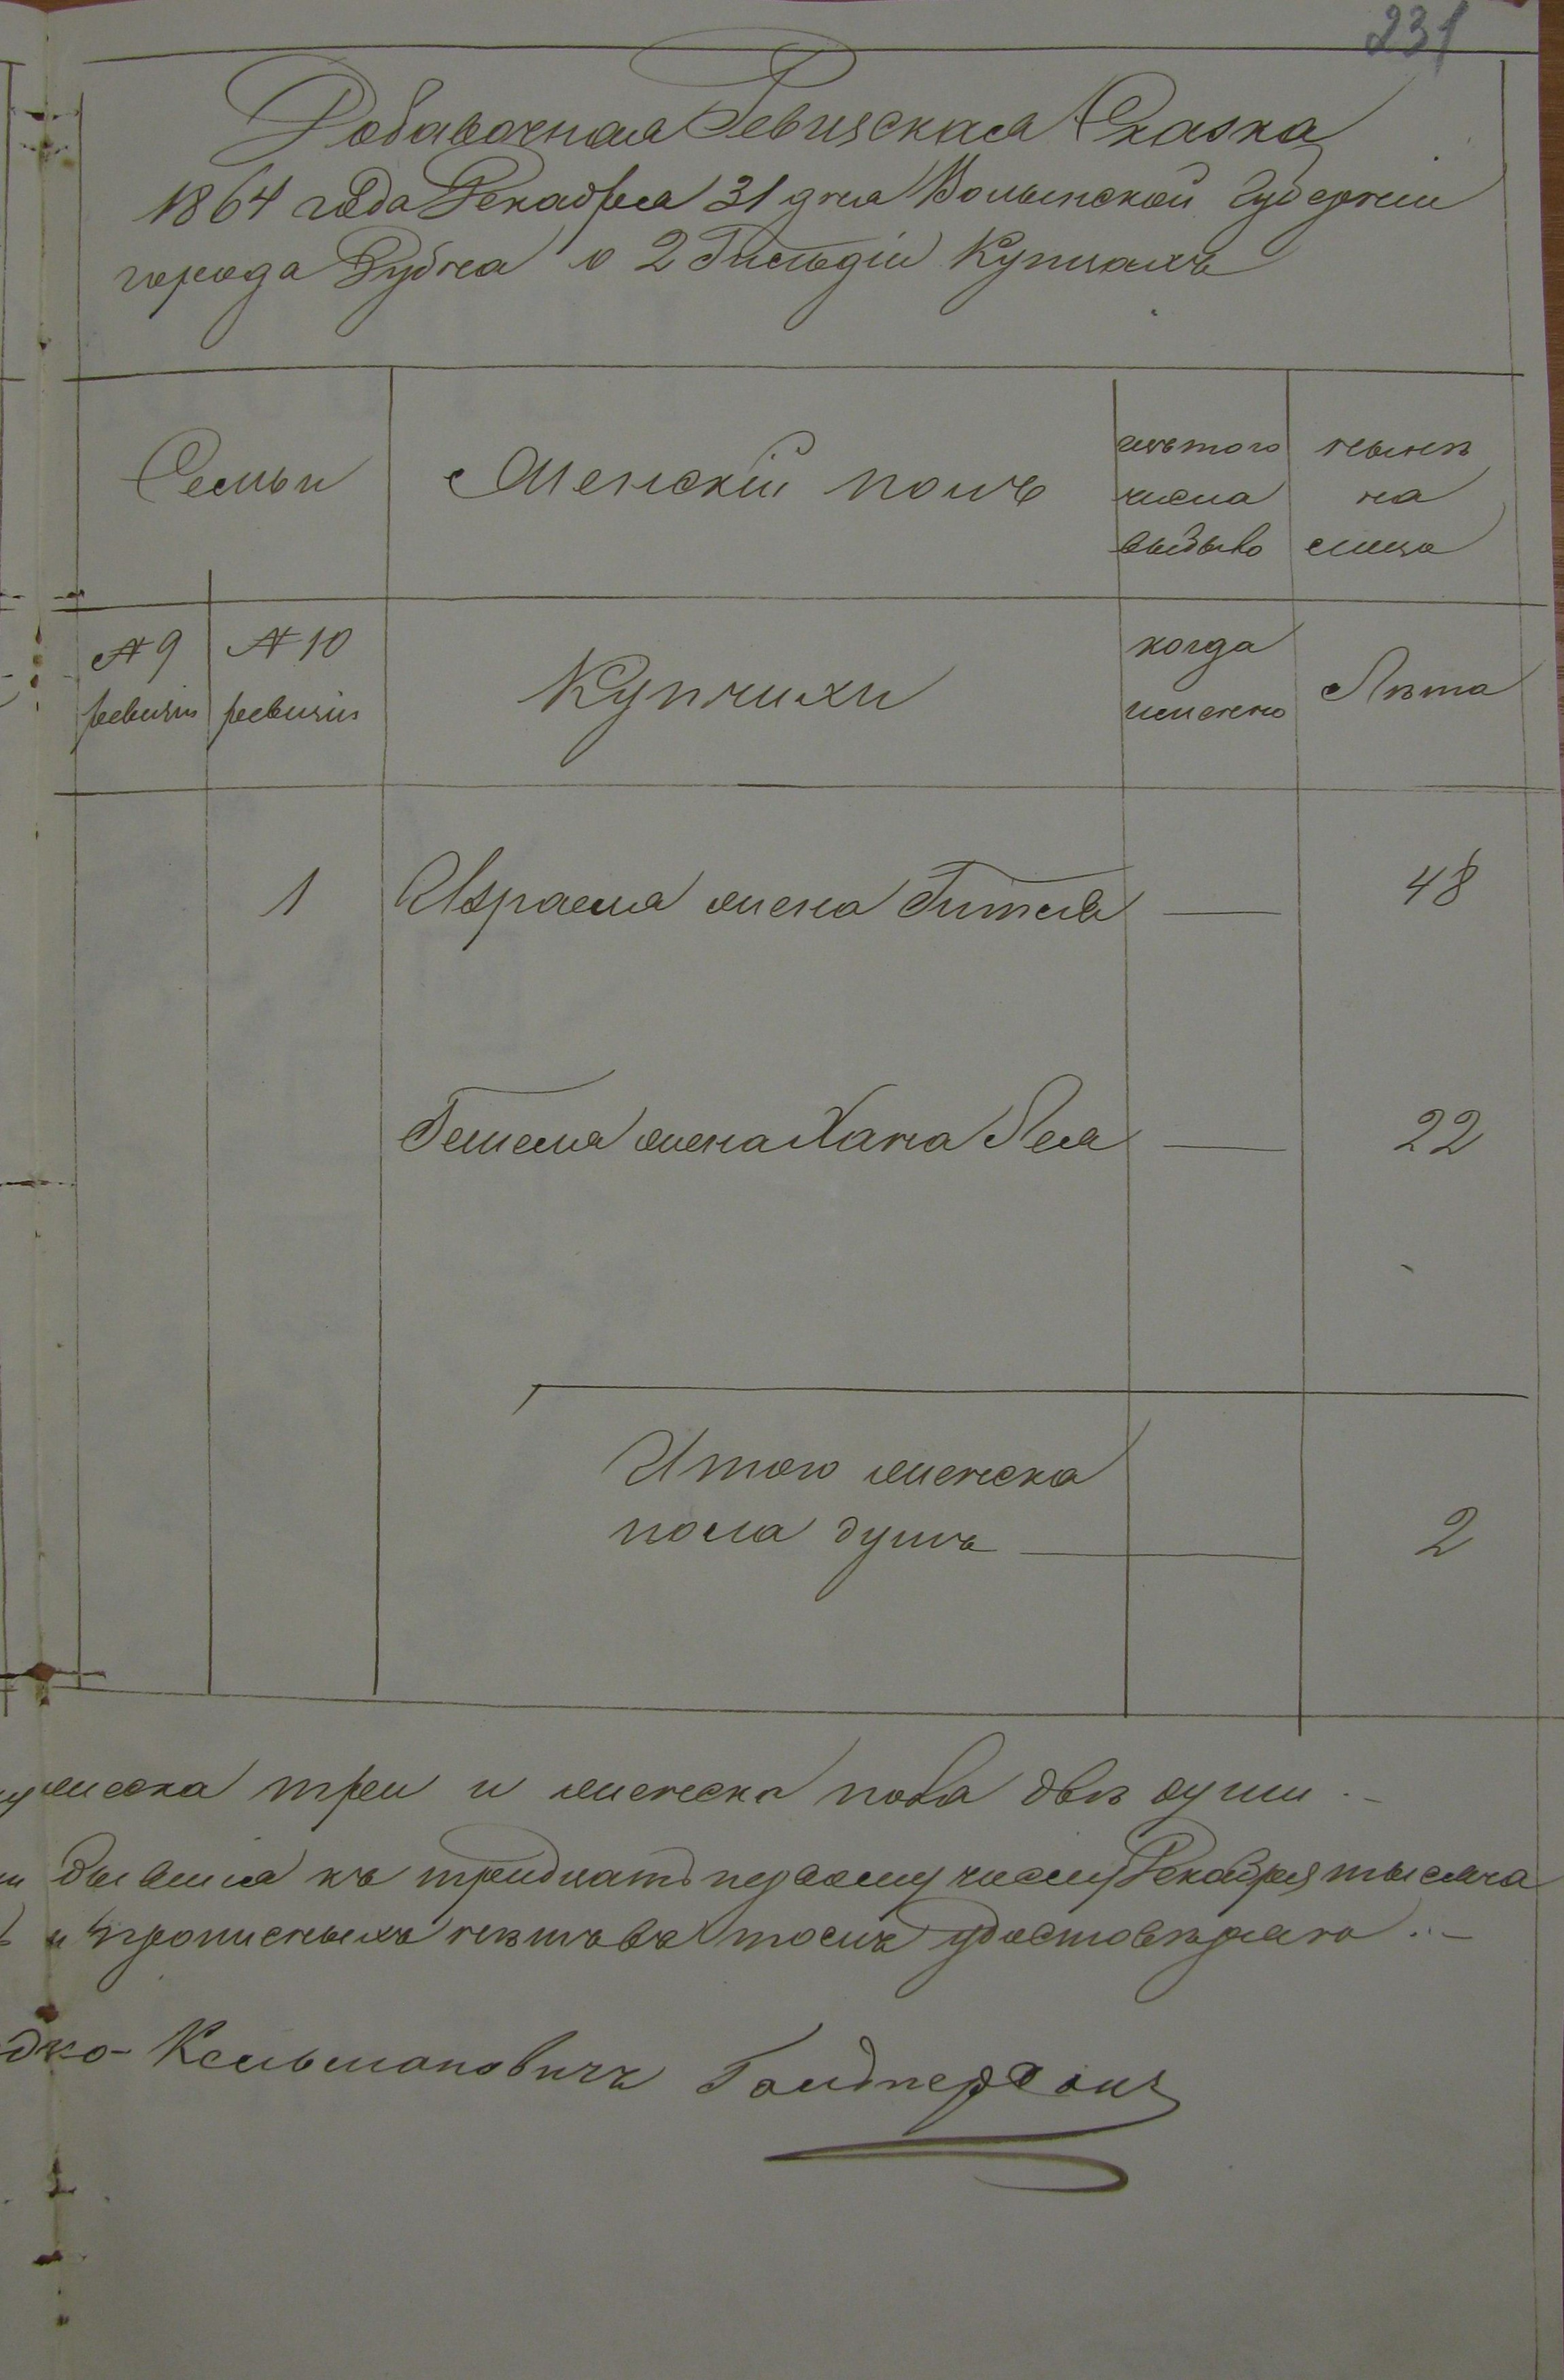 231
Добавочная Ревизская Сказка
1864 года Декабря 31 дня Волынской Губерніи
города Дубна о 2 Гильдіи Купцахъ
Семьи
Женскій полъ
изъ того
числа
выбыло
нынѣ
на
лицо
№ 9
ревизіи
№ 10
ревизіи
Купчихи
когда
именно
Лѣта
1 Израеля жена Гителя — 48
Гешеля жена Хана Лея — 22
Итого женска
пола душъ — 2
мужеска три и женска пола двѣ души .-
бывшія къ тридцать первому числу Декабря тысяча
и прописныхъ нѣтъ въ томъ удостовѣряю .-
Кельмановичъ